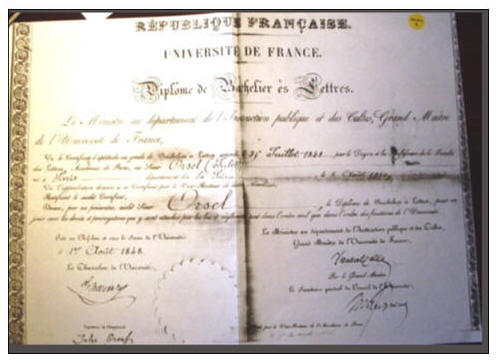 RÉPUBLIQUE FRANÇAISE.
UNIVERSITÉ DE FRANCE.
Diplôme de Bachelier ès Lettres.
Le Ministre au département de l'Instruction publique et des Cultes, Grand Maître
de l'Université de France,
Vu le Certificat d'aptitude au grade de Bachelier ès Lettres 25 Juillet 1848 par le Doyen et les Professeurs de la Faculté
des Lettres, Académie de Paris, au Sieur Orsel
né à Paris département de la Seine
Vu l'approbation donnée à ce Certificat par le Vice-Recteur de
Ratifiant le susdit Certificat,
Donne, par ces présentes, audit Sieur Orsel le Diplôme de Bachelier ès Lettres, pour en
jouir avec les droits et prérogatives qui y sont attachés par les lois et règlements, tant dans l'ordre civil que dans l'ordre des fonctions de l'Université.
Fait au Chef-lieu et sous le Sceau de l'Université
à 1er Août 1848.
Le Chancelier de l'Université,
Le Ministre au département de l'Instruction publique et des Cultes,
Grand Maître de l'Université de France,
Par le Grand Maître
Le Secrétaire général du Conseil de l'Université,
Signature de l'Impétrant
Jules Orsel
par le Vice-Recteur de l'Académie de Paris